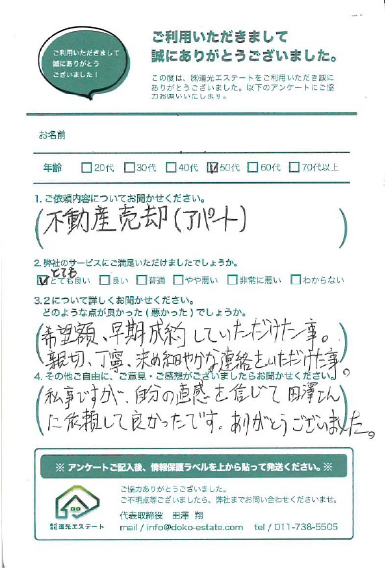 ご利用いただきまして
誠にありがとう
ございました！
ご利用いただきまして
誠にありがとうございました。
この度は、㈱道光エステートをご利用いただき誠に
ありがとうございました。以下のアンケートにご協
力お願いいたします。
お名前
年齢 □20代 □30代 □40代 ☑50代 □60代 □70代以上
1.ご依頼内容についてお聞かせください。
(不動産売却(アパート))
2.弊社のサービスにご満足いただけましたでしょうか。
とても
☑とても良い □良い □普通 □やや悪い □非常に悪い □わからない
3.2について詳しくお聞かせください。
どのような点が良かった(悪かった)でしょうか。
(希望額、早期成約していただけた事。
親切、丁寧、求め細やかな連絡をいただけた事。)
4.その他ご自由に、ご意見・ご感想がございましたらお聞かせください。
(私事ですが、自分の直感を信じて田澤さん
に依頼して良かったです。ありがとうございました。)
※ アンケートご記入後、情報保護ラベルを上から貼って発送ください。※
ご協力ありがとうございました。
ご不明点等ございましたら、弊社までお問い合わせくださいませ。
代表取締役 田澤 翔
株式会社 道光エステート
mail / info@doko-estate.com tel / 011-738-5505